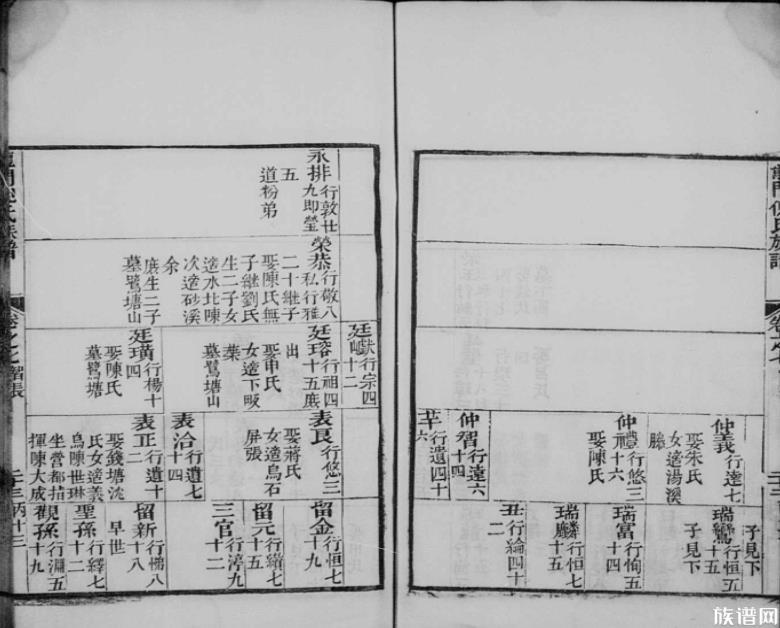 子見下
仲義行達七
娶朱氏
女適湯溪
滕
瑞鸞行恒五
十五
子見下
仲禮行悠三
十六
娶陳氏
瑞富行恂五
十四
瑞麟行恒七
十五
仲智行達六
十四
行遺四十
六
丑行綸四十
二
永排行敦廿
九即瑩
五
道粉弟
榮恭行敬八
私行雅
二十繼子
娶陳氏無
子繼劉氏
生二子女
適水北陳
次適砂溪
余
庻生二子
墓鷺塘山
廷巘行宗四
十二
廷瑢行祖四
十五庻
出
娶申氏
女適下畈
葉
墓鷺塘山
廷璜行楊十
四
娶陳氏
墓鷺塘
表良行悠三
十一
娶蔣氏
女適烏石
屏張
表洽行遺七
十四
表正行遺十
二
娶錢塘沈
氏女適義
烏陳世琳
坐營都指
揮陳大成
留金行恒七
十九
留元行續七
十五
三官行渟九
十二
留新行悌八
十八
早世
聖孫行繹七
十
觀孫行淵五
十九
卷之七
二十三
丙十三
族谱网
zupu.cn